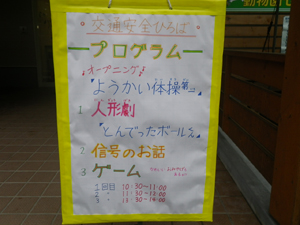 交通安全ひろば
プログラム
♪オープニング♪
『ようかい体操第一』
1 人形劇
『とんでったボールくん』
2 信号のお話
3 ゲーム
1回目 10:30~11:00
2 〃 11:30~12:00
3 〃